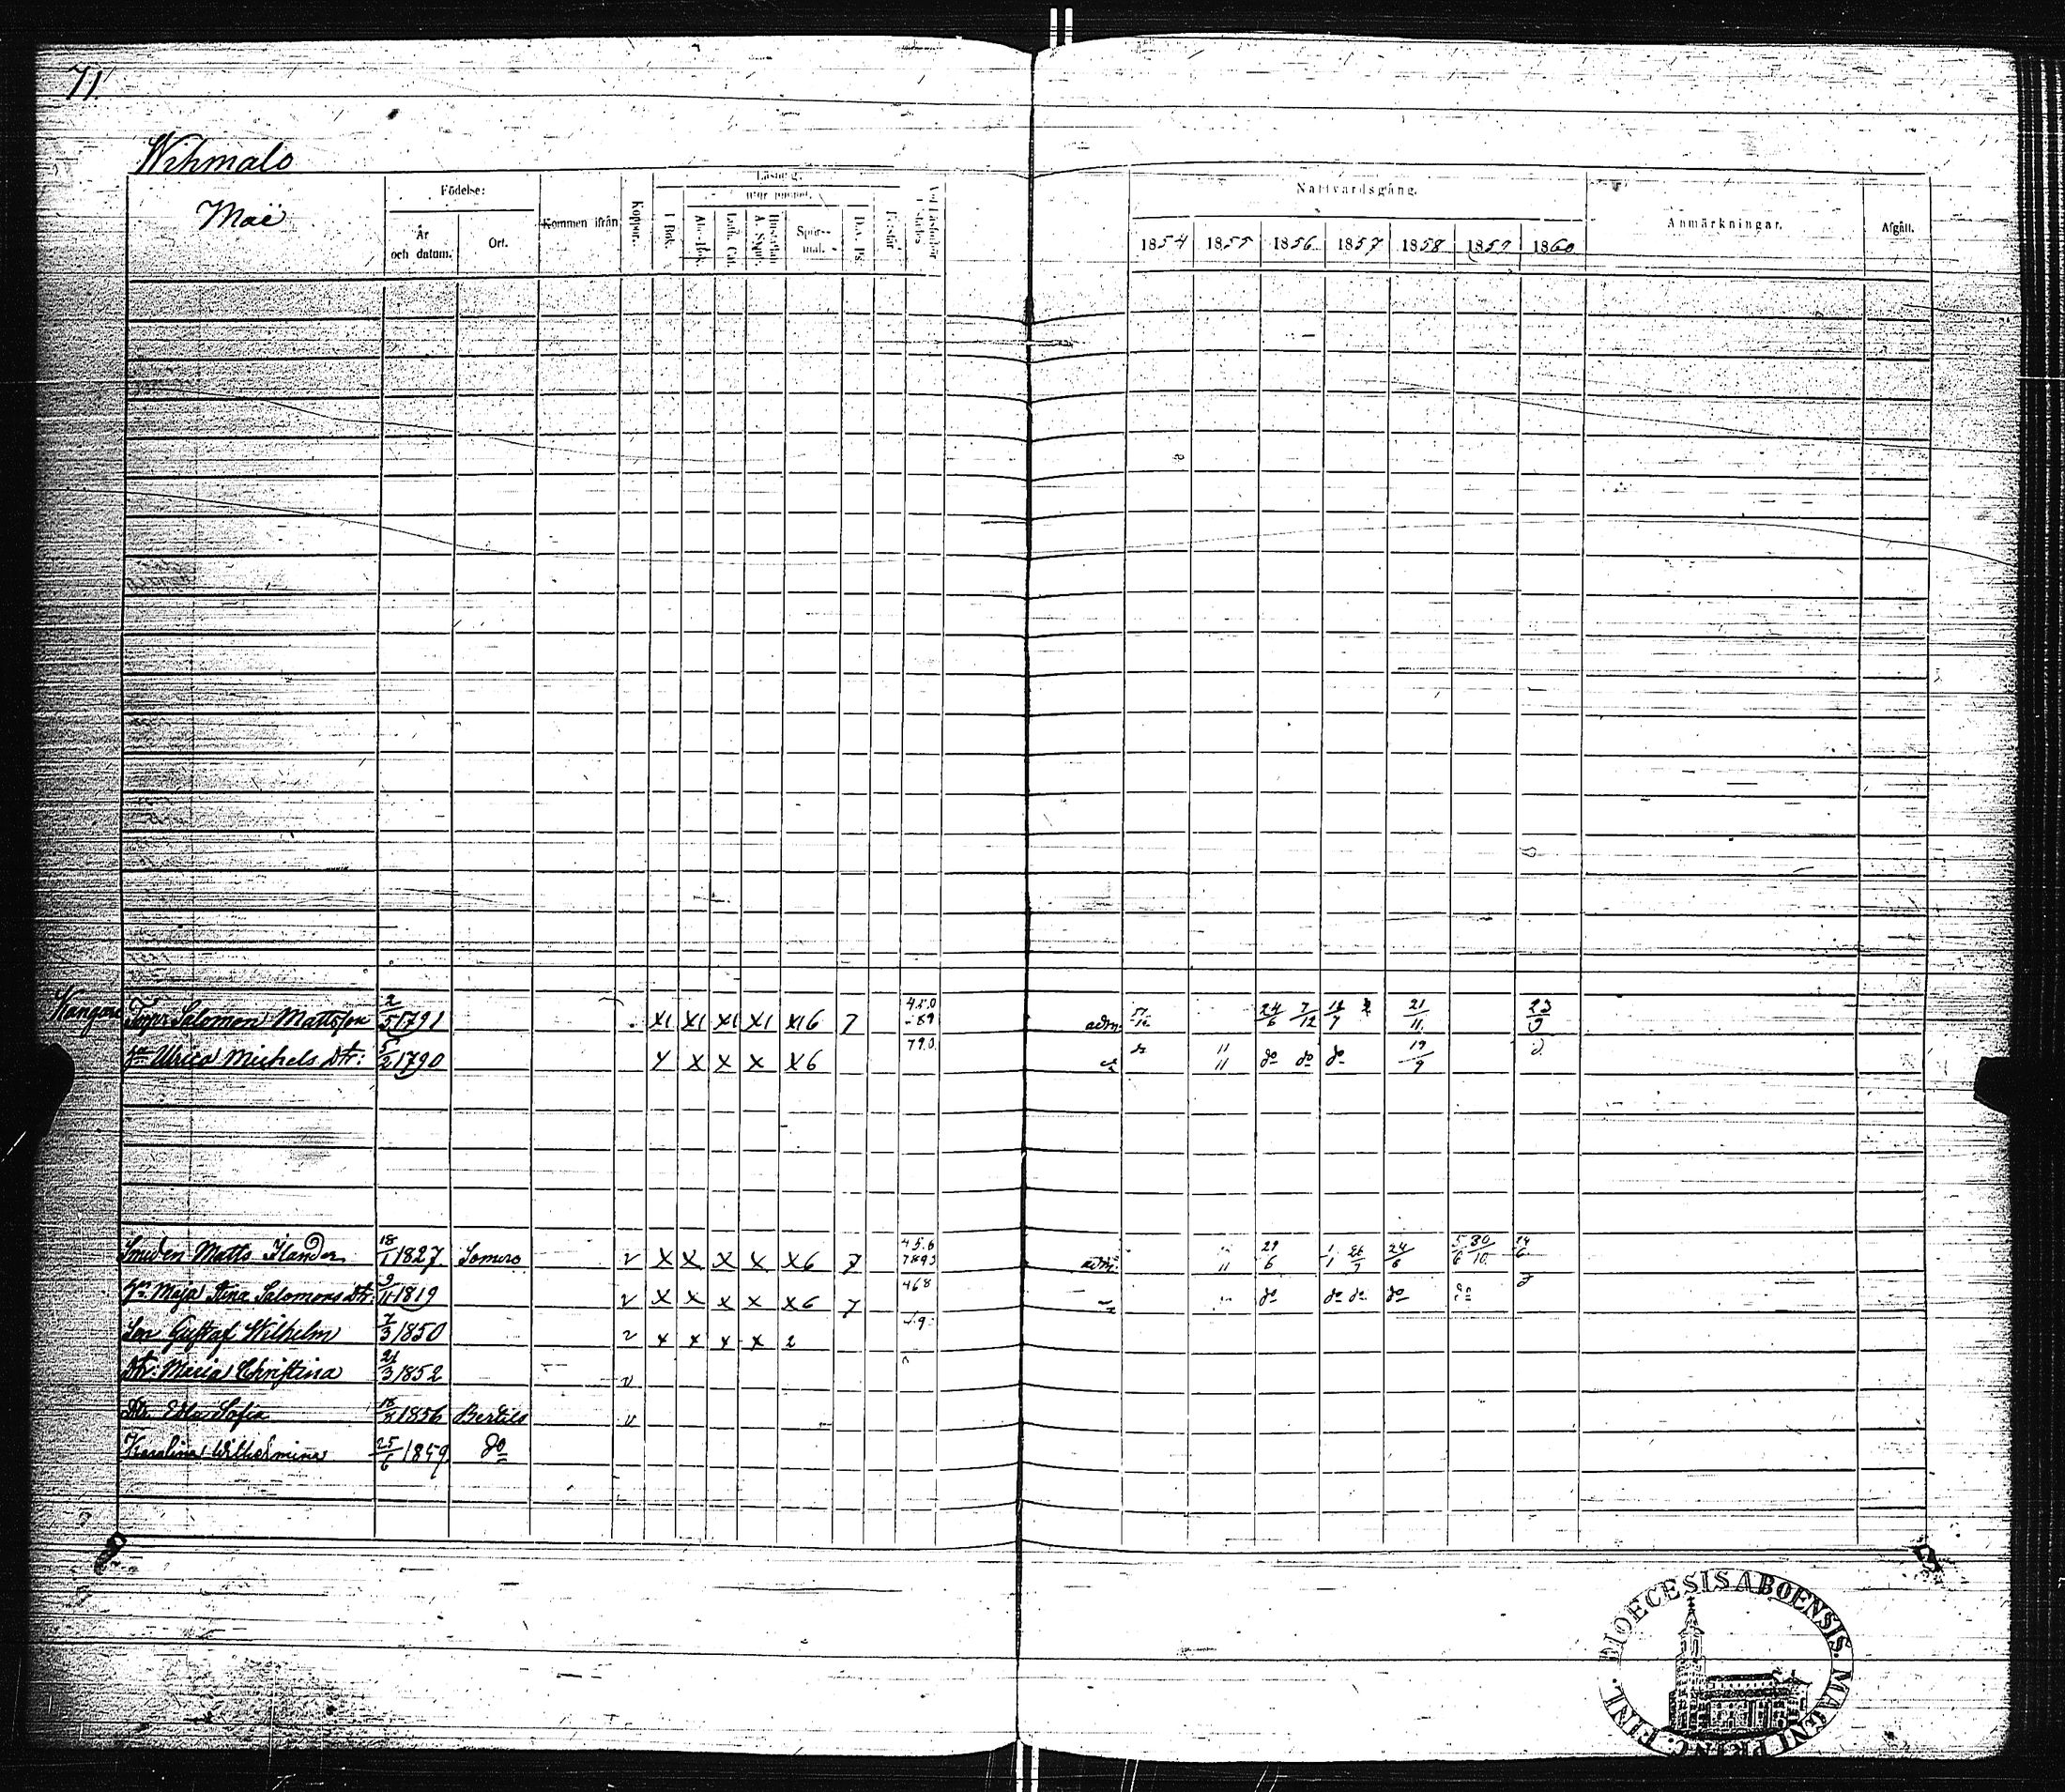 71.
Wihmalo
Maë
Födelse:
År och datum.
Ort.
Kommen ifrån
Koppor.
Läsning.
I Bok.
Abc-Bok.
Luth. Cat.
Hustaflan A. Symb.
Spörs-mål.
Dav. Ps.
Nattvardsgång.
1854 1855 1856 1857 1858 1859 1860
Anmärkningar.
Afgått.
Kangare Torpr Salomon Mattsson 2/5 1791 X1 X1 X1 X1 X1 6 7 adm. 24/6 7/12 21/11 23/9
Hu Ulrica Michels Dtr: 5/2 1790 X X X X X 6 790. 11/11 do do do 19/9
Smeden Matts Ilander 18/1 1827 Somero v X X X X X 6 7 456 adm. 29/6 24/6 5/6 30/10 24/6
Hu Maja Stina Salomons Dtr: 9/11 1819 v X X X X X 6 7 468 do do do do
Son Gustaf Wilhelm 7/3 1850 v X X X X 2
Dtr. Maria Christina 21/3 1852 v
Dtr. Edla Sofia 1856 Bertils v
Karolina Wilhelmina 25/6 1859 do
DIOECESIS ABOENSIS. MAGNI PRINC. FINL.